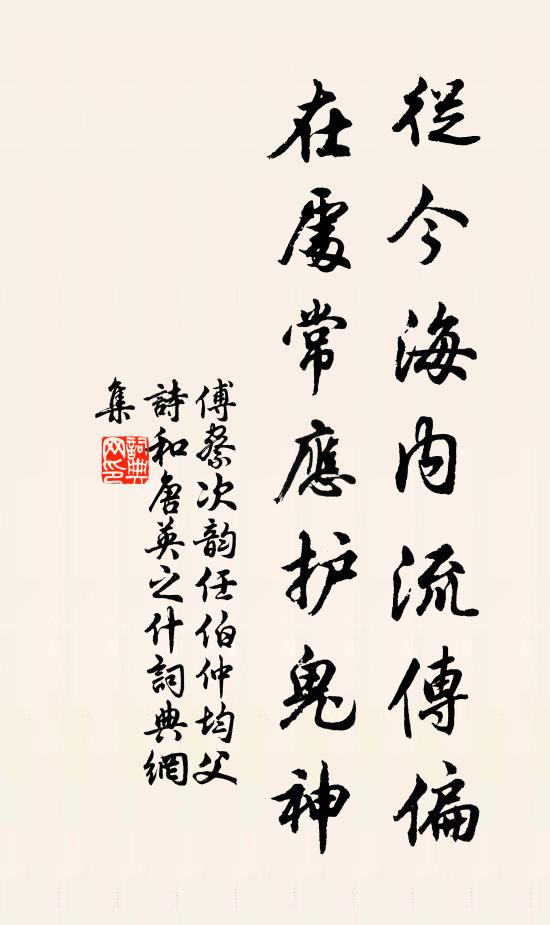 從今海内流傳偏
在處常應护鬼神
傅察次韵任伯仲均父
詩和詹英之什詞典網
集